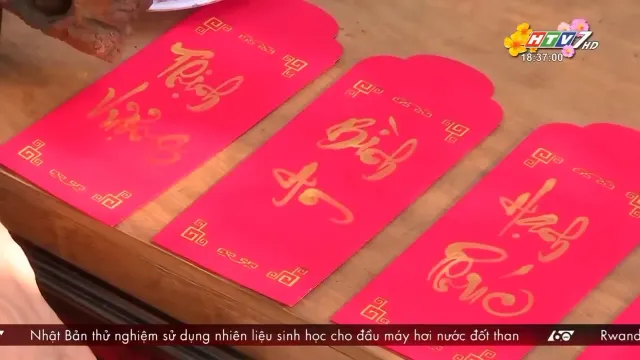 HTV7 HD
18:37:00
Thịnh
Vượng
Bình
An
Hạnh
Phúc
Nhật Bản thử nghiệm sử dụng nhiên liệu sinh học cho đầu máy hơi nước đốt than
60
Rwand